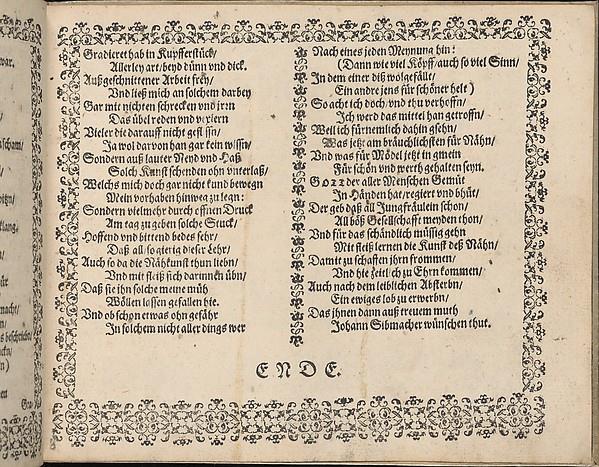 Gradieret hab in Kupfferstück/
Allerley art/ beyd dünn vnd dick.
Außgeschnittener Arbeit frey/
Vnd ließ mich an solchem darbey
Gar mit nichten schrecken vnd jrrn
Das übel reden vnd
Vieler die darauff nicht gefliſſn/
Ja wol darvon han gar kein wiſſn/
Sondern auß lauter Neyd vnd Haß
Solch Kunst schenden ohn vnterlaß/
Welchs mich doch gar nicht kund bewegn
Mein vorhaben hinweg zu legn:
Sondern vielmehr durch offnen Druck
Am tag zu geben solche Stuck/
Hoffend vnd bittend bedes sehr/
Daß all/ so gierig dieser Lehr/
Auch so da die Nähkunst thun liebn/
Vnd mit fleiß sich darinnen übn/
Daß sie ihn solche meine müh
Wöllen lassen gefallen hie.
Vnd ob schon etwas ohn gefähr
In solchem nicht aller dings wer
Nach eines jeden Meynung hin:
(Dann wie viel Köpff/ auch so viel Sinn/
In dem einer diß wolgefällt/
Ein andr jens für schöner helt)
So acht ich doch/ vnd thu verhoffn/
Ich werd das mittel han getroffn/
Weil ich fürnemlich dahin gsehn/
Was jetzt am bräuchlichsten für Nähn/
Vnd was für Mödel jetzt in gmein
Für schön vnd werth gehalten seyn.
GOTT der aller Menschen Gemüt
In Händen hat/ regiert vnd bhüt/
Der geb daß all Jungfräulein schon/
All böß Gesellschafft meyden thon/
Vnd für das schändlich müssig gehn
Mit fleiß lernen die Kunst deß Nähn/
Damit zu schaffen jhrn frommen/
Vnd hie zeitlich zu Ehrn kommen/
Auch nach dem leiblichen Absterbn/
Ein ewiges lob zu erwerbn/
Das jhnen dann auß treuem muth
Johann Sibmacher wünschen thut.
ENDE.